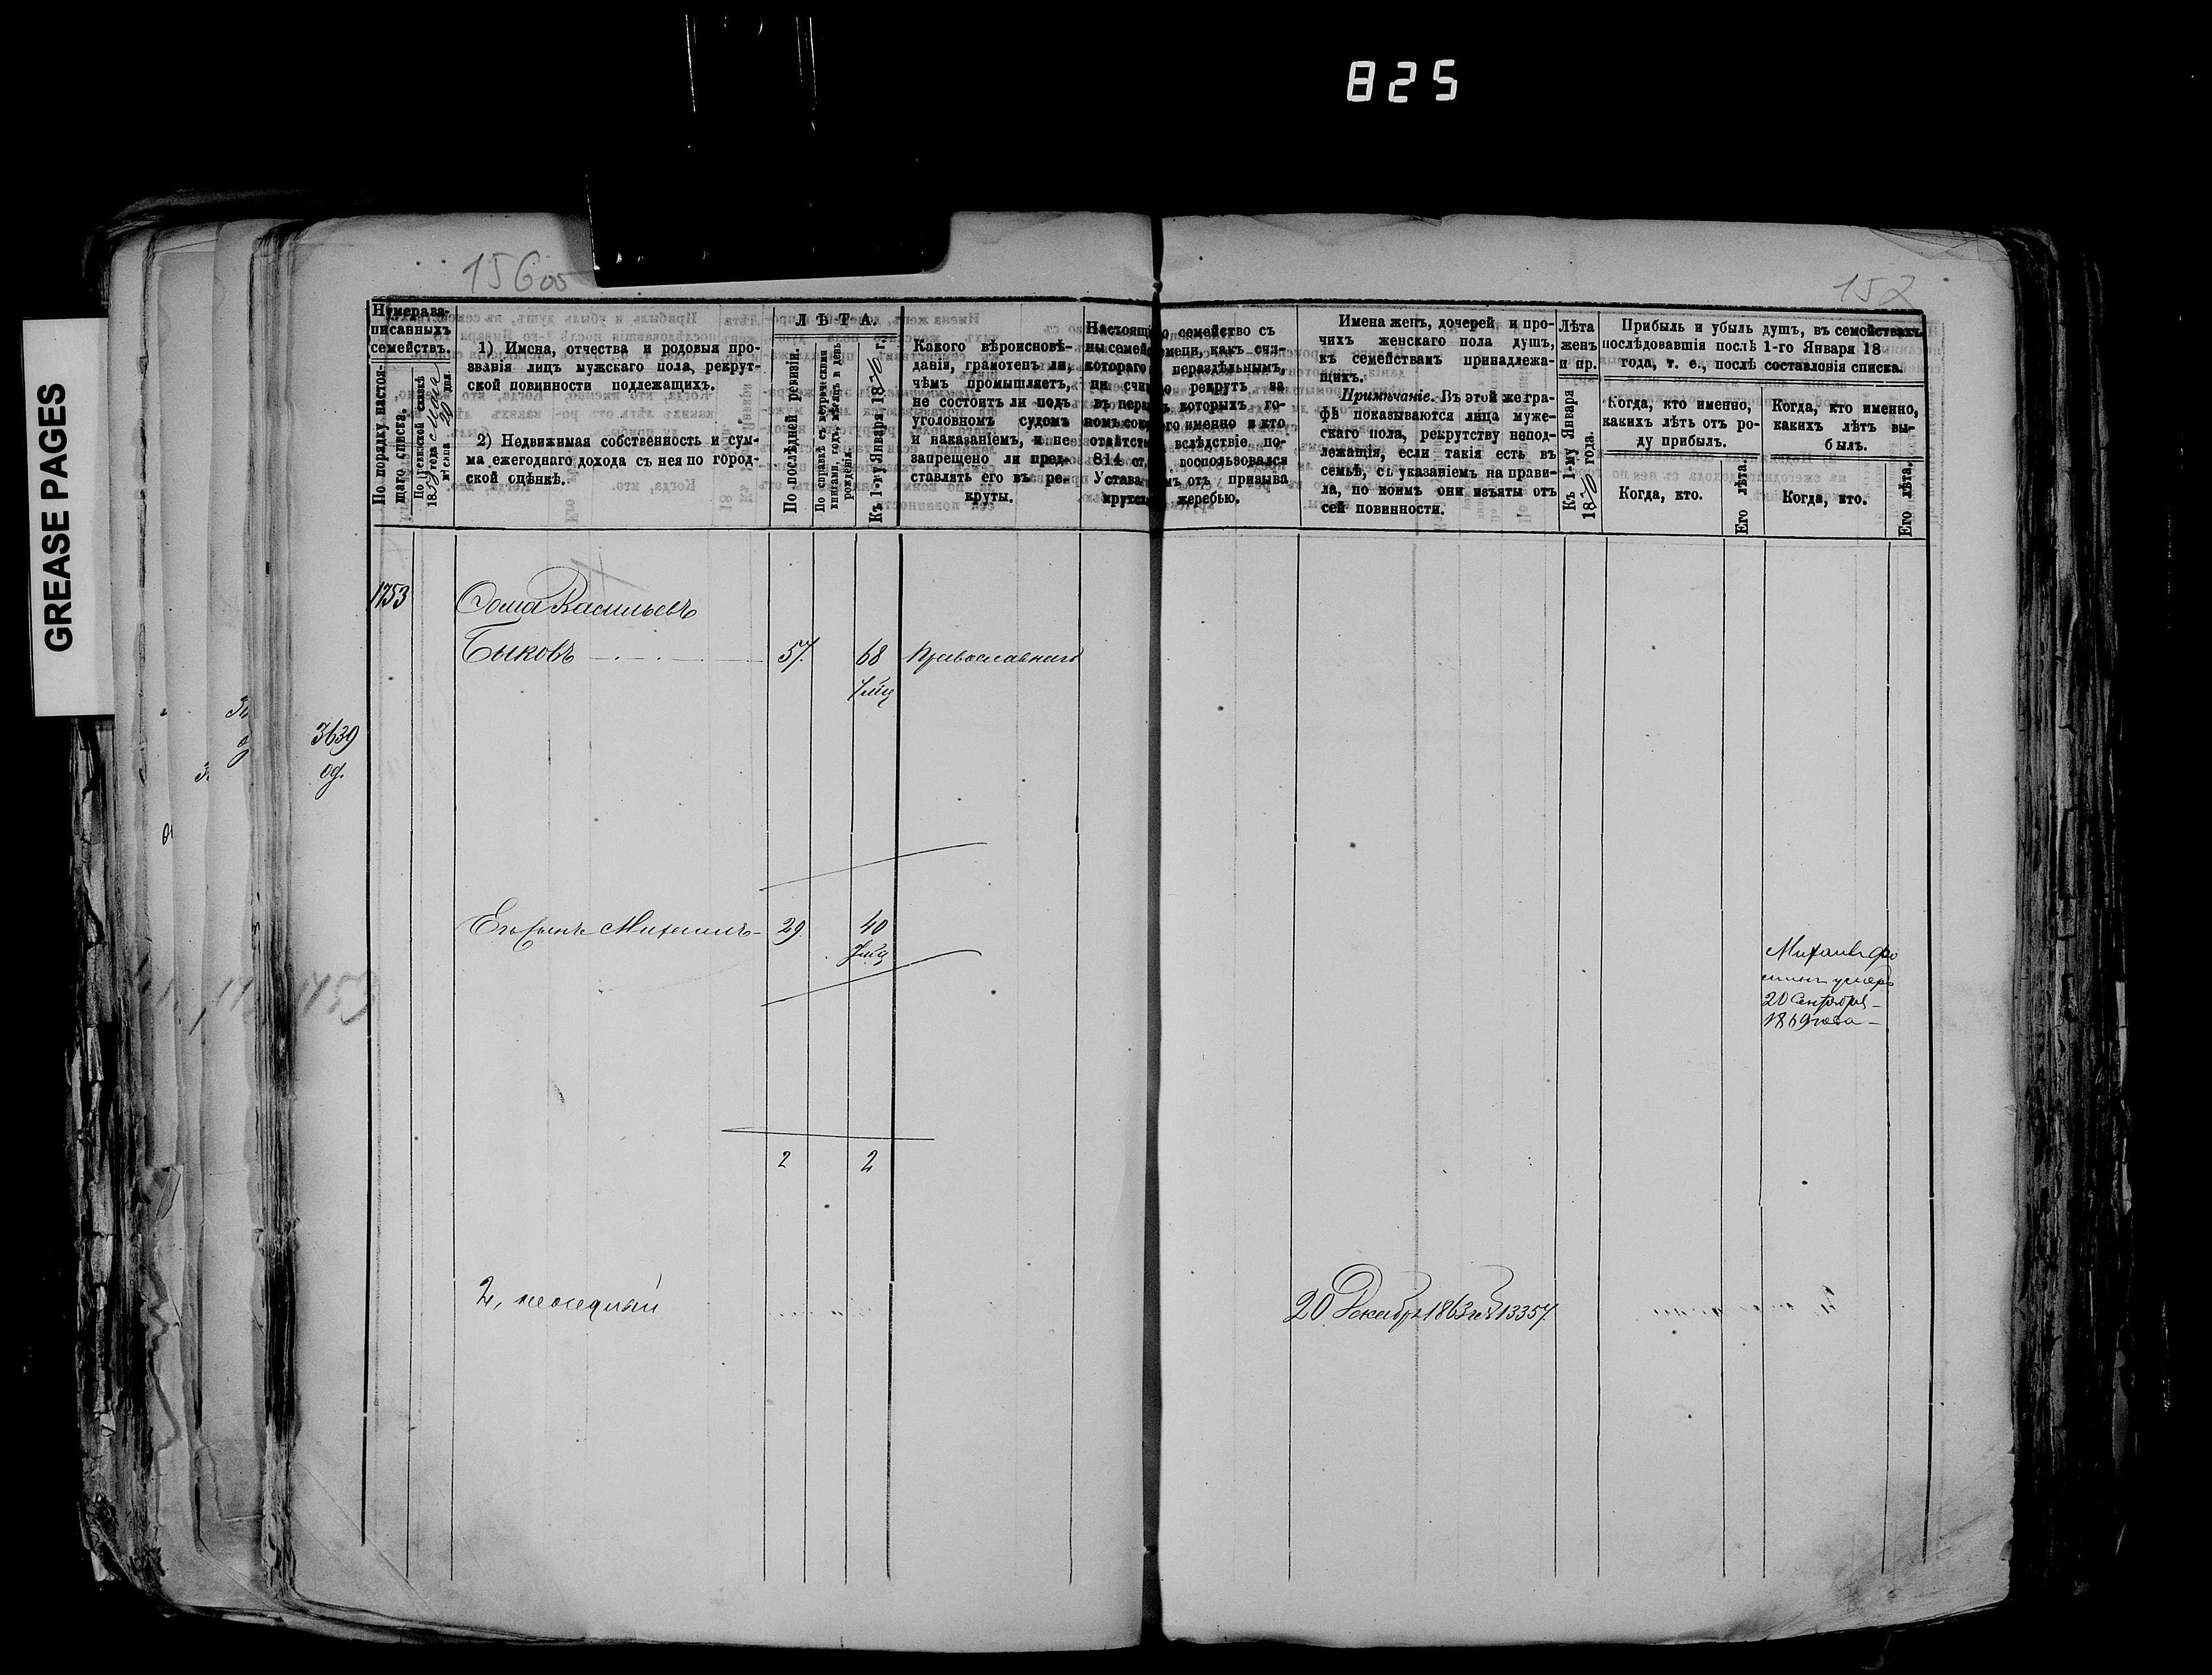 825
GREASE PAGES
156 об
157
Нумера за-
писанныхъ
семействъ.
По порядку настоя-
щаго списка.
По ревизской сказкѣ
1) Имена, отчества и родовыя про-
званія лицъ мужскаго пола, рекрут-
ской повинности подлежащихъ.
2) Недвижимая собственность и сум-
ма ежегоднаго дохода съ нея по город-
ской оцѣнкѣ.
ЛѢТА.
По послѣдней ревизіи.
По справкѣ съ метрическими
книгами, годъ, мѣсяцъ и день
рожденія.
Къ 1-му Января 1870 г.
Какого вѣроисповѣ-
данія, грамотенъ ли,
чѣмъ промышляетъ,
не состоитъ ли подъ
уголовномъ судомъ
и наказаніемъ, и не
запрещено ли пред-
ставлять его въ ре-
круты.
Настоящ о семейство съ
ны семей емени, какъ счи-
котораго нераздѣльнымъ,
ли счи о рекрутъ за
въ пер ъ которыхъ го-
номъ сос го именно и кто
отвѣтст вслѣдствіе по-
814 ст. воспользовался
Устава мъ отъ призыва
крутск жеребью.
Имена женъ, дочерей и про-
чихъ женскаго пола душъ,
къ семействамъ принадлежа-
щихъ.
Примѣчаніе. Въ этой же гра-
фѣ показываются лица муже-
скаго пола, рекрутству непод-
лежащія, если такія есть въ
семьѣ, съ указаніемъ на прави-
ла, по коимъ они изъяты отъ
сей повинности.
Лѣта
женъ
и пр.
Къ 1-му Января
1870 года.
Прибыль и убыль душъ, въ семействахъ
послѣдовавшія послѣ 1-го Января 18
года, т. е., послѣ составленія списка.
Когда, кто именно,
какихъ лѣтъ отъ ро-
ду прибылъ.
Когда, кто именно,
какихъ лѣтъ вы-
былъ.
Когда, кто.
Его лѣта.
Когда, кто.
Его лѣта.
1753
Ѳома Васильевъ
Быковъ 57. 68 Православнаго
3639
Его сынъ Михаилъ 29 40
Михаилъ Ѳо
минъ умеръ
20 Сентября
1869 года
2 2
20 Декабря 1863 г № 13357.